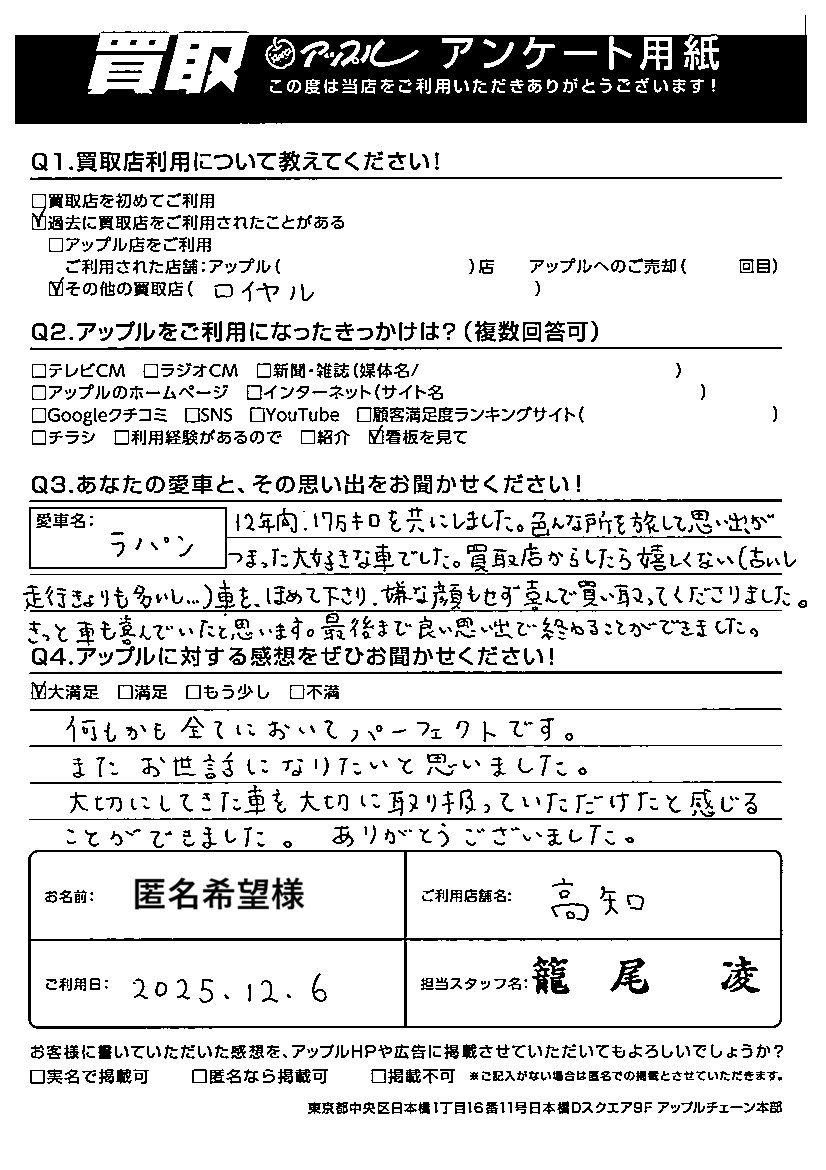 買取 アップル アンケート用紙
この度は当店をご利用いただきありがとうございます!
Q1.買取店利用について教えてください!
□買取店を初めてご利用
☑過去に買取店をご利用されたことがある
□アップル店をご利用
ご利用された店舗:アップル( )店 アップルへのご売却( 回目)
☑その他の買取店( ロイヤル )
Q2.アップルをご利用になったきっかけは?(複数回答可)
□テレビCM □ラジオCM □新聞・雑誌(媒体名/ )
□アップルのホームページ □インターネット(サイト名 )
□Googleクチコミ □SNS □YouTube □顧客満足度ランキングサイト( )
□チラシ □利用経験があるので □紹介 ☑看板を見て
Q3.あなたの愛車と、その思い出をお聞かせください!
愛車名: ラパン 12年間、17万キロを共にしました。色んな所を旅して思い出が
つまった大好きな車でした。買取店からしたら嬉しくない(古いし
走行きょりも多いし…)車を、ほめて下さり、嫌な顔もせず喜んで買い取ってくださりました。
きっと車も喜んでいたと思います。最後まで良い思い出で終わることができました。
Q4.アップルに対する感想をぜひお聞かせください!
☑大満足 □満足 □もう少し □不満
何もかも全てにおいてパーフェクトです。
またお世話になりたいと思いました。
大切にしてきた車を大切に取り扱っていただけたと感じる
ことができました。 ありがとうございました。
お名前: 匿名希望様 ご利用店舗名: 高知
ご利用日: 2025.12.6 担当スタッフ名: 籠尾 凌
お客様に書いていただいた感想を、アップルHPや広告に掲載させていただいてもよろしいでしょうか?
□実名で掲載可 □匿名なら掲載可 □掲載不可 ※ご記入がない場合は匿名での掲載とさせていただきます。
東京都中央区日本橋1丁目16番11号日本橋Dスクエア9F アップルチェーン本部